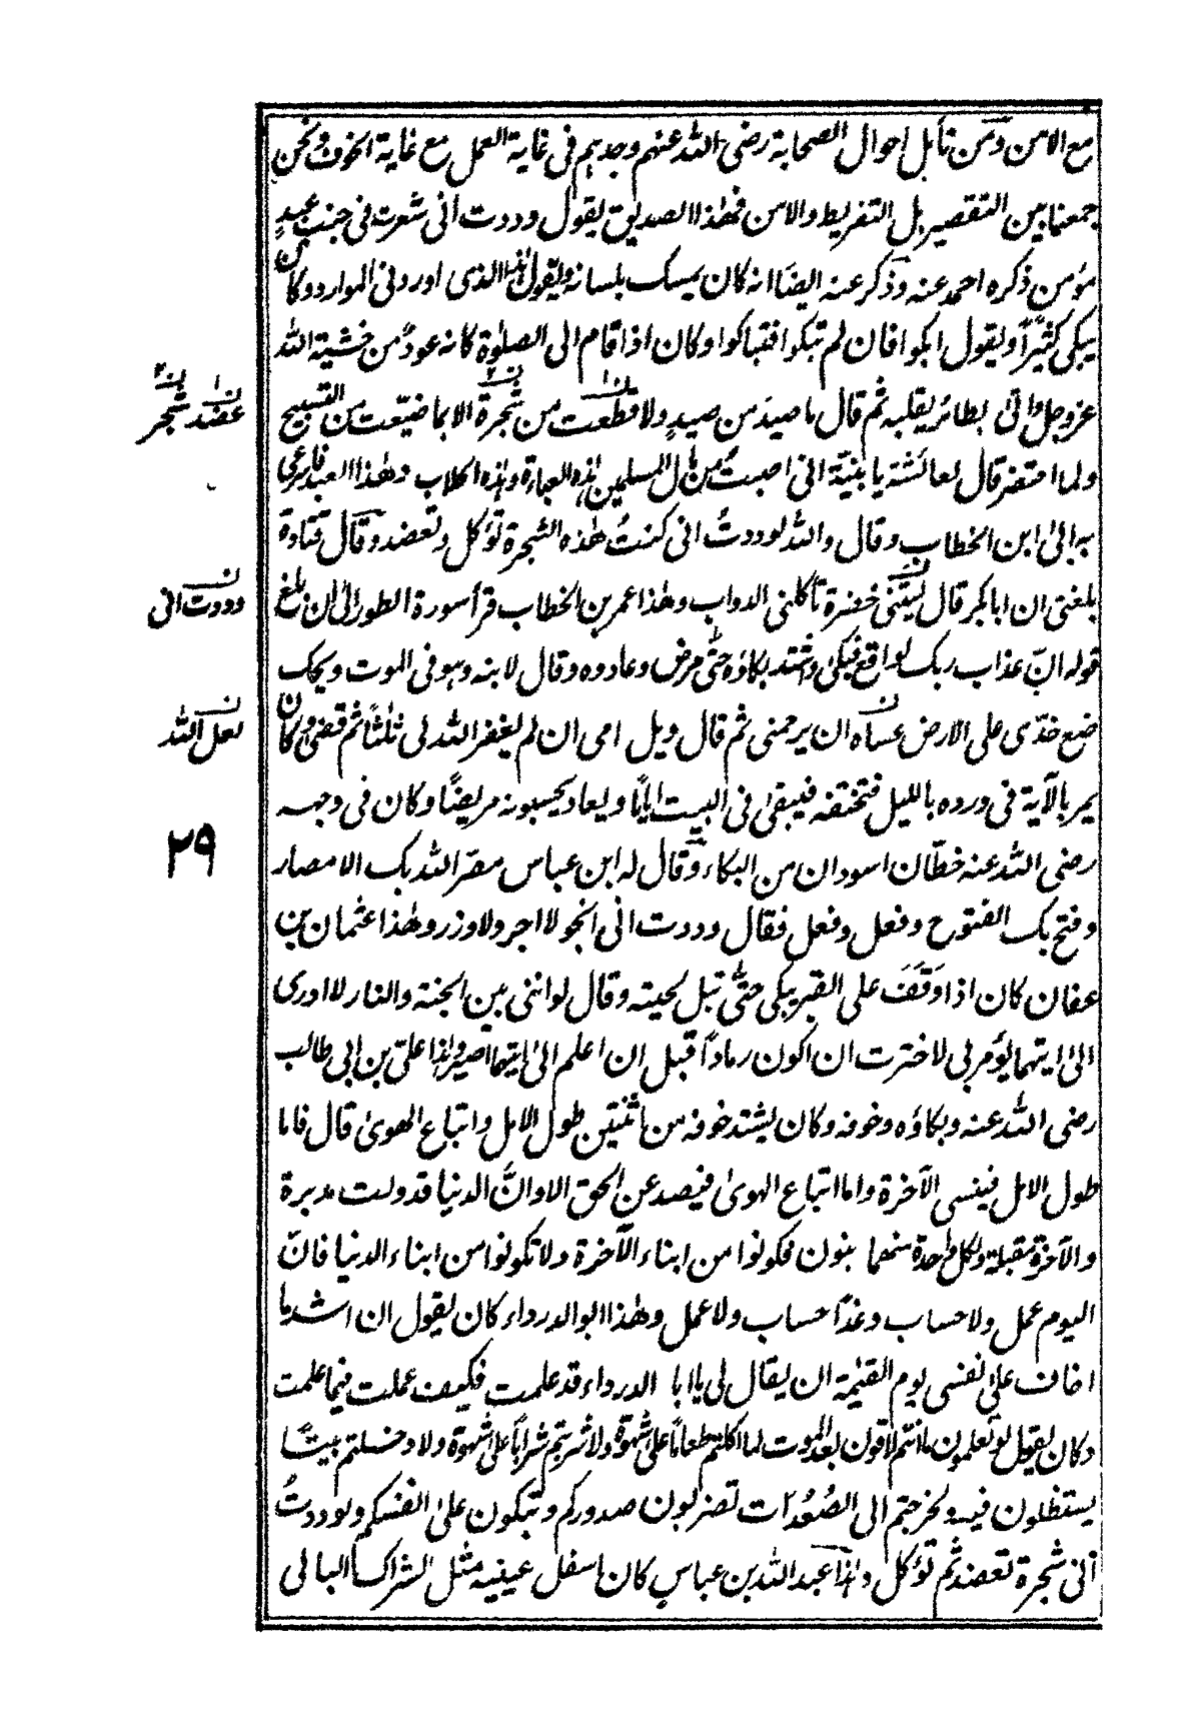 مع الامن ومن تأمل احوال الصحابة رضى الله عنهم وجدهم فى غاية العمل مع غاية الخوف ونحن
جمعنا بين التقصير بل التفريط والامن فهذا الصديق يقول وددت انى شعرة فى جنب عبدٍ
مؤمن ذكره احمد عنه وذكر عنه ايضًا انه كان يمسك بلسانه ويقول هذا الذى اوردنى الموارد وكان
يبكى كثيرًا ويقول ابكوا فان لم تبكوا فتباكوا وكان اذا قام الى الصلوٰة كانه عودٌ من خشية الله
عزوجل واتى بطائر يقلبه ثم قال ما صيدَ من صيدٍ ولا قطعت من شجرة الا بما ضيّعت من التسبيح
ولما احتضر قال لعائشة يا بنيّة انى اصبتُ من مال المسلمين هذه العباءة وهذه الحلاب وهذا العبد فاسرعى
به الىٰ ابن الخطاب وقال والله لوددتُ انى كنتُ هٰذه الشجرة تؤكل وتعضد وقال قتادة
بلغنى ان ابابكر قال ليتنى خضرة تأكلنى الدواب وهٰذا عمر بن الخطاب قرأ سورة الطور الىٰ ان بلغ
قوله انّ عذاب ربك لواقع فبكىٰ واشتد بكاؤه حتّٰى مرض وعادوه وقال لابنه وهو فى الموت ويحك
ضع خدّى على الارض عساه ان يرحمنى ثم قال ويل امى ان لم يغفر الله لى ثلٰثاً ثم قضىٰ وكان
يمر بالآية فى ورده بالليل فتخنقه فيبقىٰ فى البيت اياماً ويعاد يحسبونه مريضًا وكان فى وجهه
رضى الله عنه خطّان اسودان من البكاء وقال له ابن عباس مصّر الله بك الامصار
وفتح بك الفتوح وفعل وفعل فقال وددت انى انجو لا اجر ولا وزر وهٰذا عثمان بن
عفان كان اذا وَقَفَ على القبر يبكى حتّٰى تبل لحيته وقال لو اننى بين الجنة والنار لا ادرى
الىٰ ايتهما يؤمر بى لاخترت ان اكون رماداً قبل ان اعلم الىٰ ايتهما اصير وهذا علىّ بن ابى طالب
رضى الله عنه وبكاؤه وخوفه وكان يشتد خوفه من اثنتين طول الامل واتباع الهوىٰ قال فاما
طول الامل فينسى الآخرة واما اتباع الهوىٰ فيصد عن الحق الا وانَّ الدنيا قد ولت مدبرة
والآخرة مقبلة ولكل واحدة منهما بنون فكونوا من ابناء الآخرة ولا تكونوا من ابناء الدنيا فانّ
اليوم عمل ولا حساب وغداً حساب ولا عمل وهٰذا ابو الدرداء كان يقول ان اشد ما
اخاف علىٰ نفسى يوم القيٰمة ان يقال لى يا ابا الدرداء قد علمت فكيف عملت فيما علمت
وكان يقول لو تعلمون ما انتم لاقون بعد الموت لما اكلتم طعاماً علىٰ شهوة ولا شربتم شراباً علىٰ شهوة ولا دخلتم بيتًا
يستظلون فيه ولخرجتم الى الصُعُدات تضربون صدوركم وتبكون علىٰ انفسكم ولوددتُ
انى شجرة تعضد ثم تؤكل وهذا عبد الله بن عباسٍ كان اسفل عينيه مثل الشراك البالى
عضد شجر
وددت انى
لعل الله
٢٩